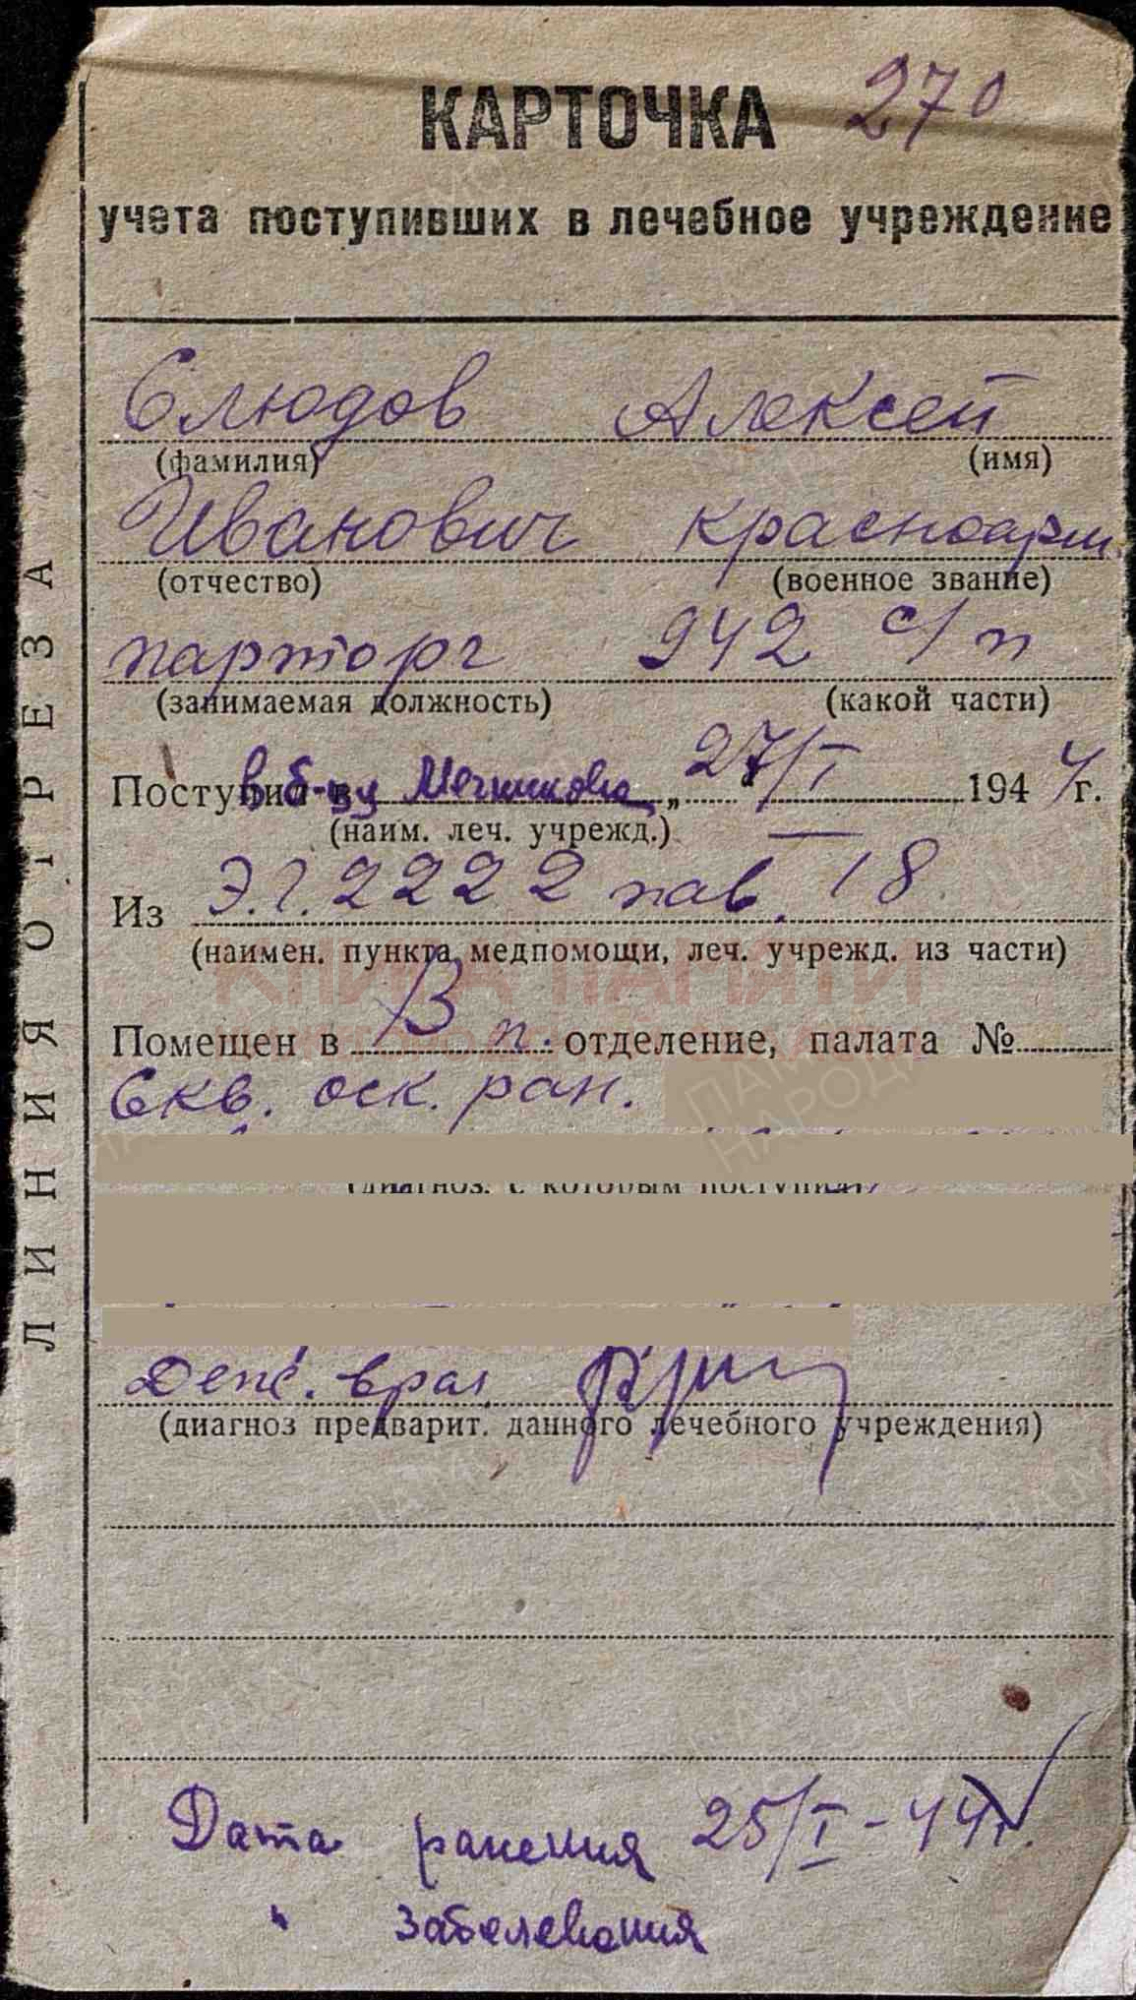 270
КАРТОЧКА
учета поступивших в лечебное учреждение
Слюдов Алексей
(фамилия) (имя)
Иванович красноарм.
(отчество) (военное звание)
парторг 942 с/п
(занимаемая должность) (какой части)
Поступил в б-цу Мечникова „27/I 1944г.
(наим. леч. учрежд.)
Из Э.Г. 2222 пав. 18
(наимен. пункта медпомощи, леч. учрежд. из части)
Помещен в В п. отделение, палата №
Скв. оск. ран.
(диагноз, с которым поступил)
Деж. врач
(диагноз предварит. данного лечебного учреждения)
Дата ранения 25/I-44г.
" заболевания
ЛИНИЯ ОТРЕЗА
КНИГА ПАМЯТИ
ПАМЯТЬ НАРОДА